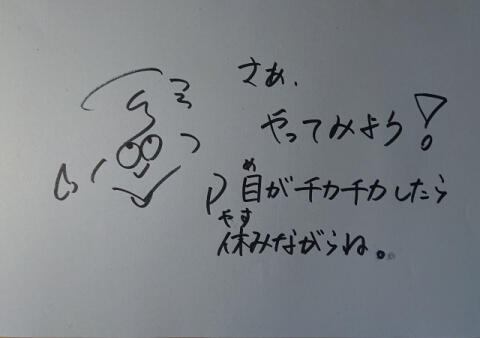 さぁ、
やってみよう!
め
目がチカチカしたら
やす
休みながらね。